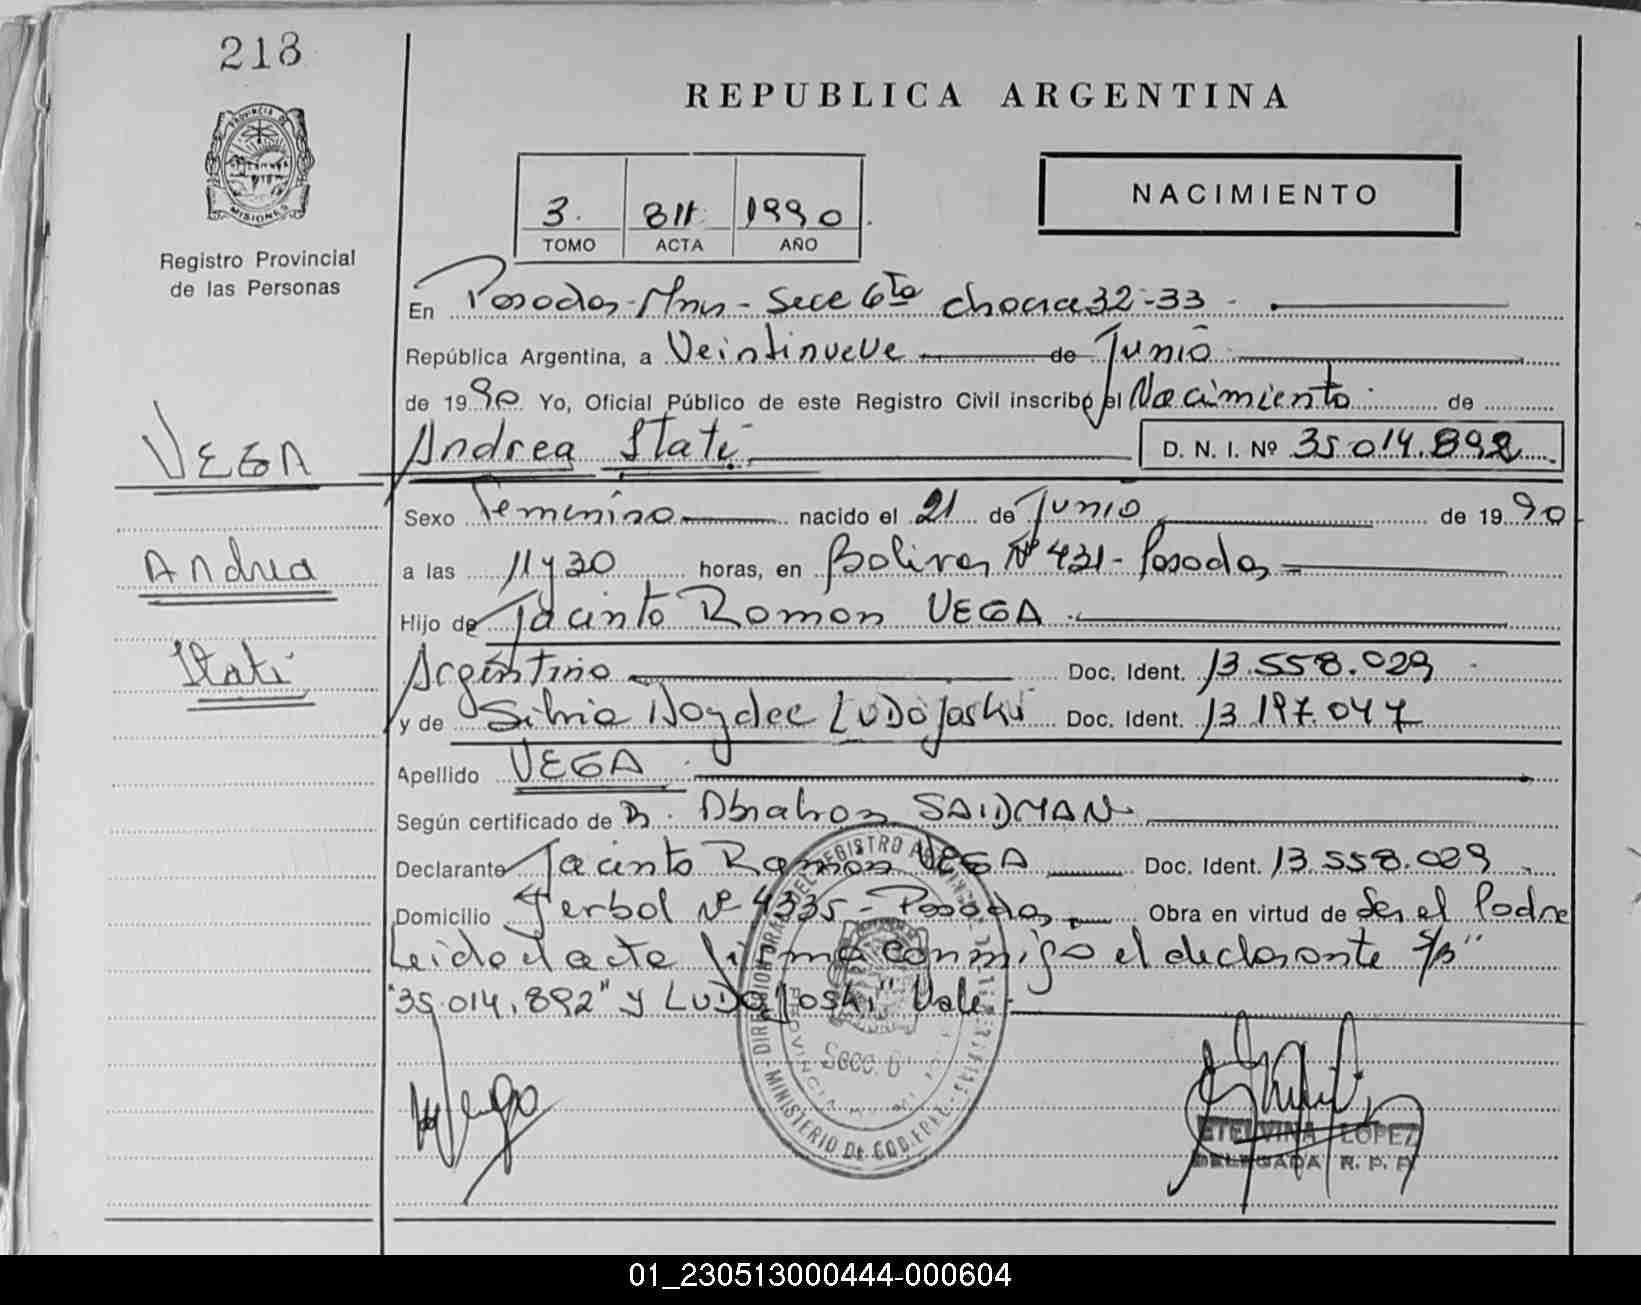 218
REPUBLICA ARGENTINA
PROVINCIA DE
MISIONES
Registro Provincial
de las Personas
3. 811 1990
TOMO ACTA AÑO
NACIMIENTO
En Posadas - Mns - Secc 6ta chacra 32-33 -
República Argentina, a Veintinueve de Junio
de 1990 Yo, Oficial Público de este Registro Civil inscribo el Nacimiento de
VEGA
Andrea Itati
D. N. I. Nº 35.014.892
Sexo Femenino nacido el 21 de Junio de 1990
Andrea
a las 11 y 30 horas, en Bolivar Nº 431 - Posadas
Hijo de Jacinto Ramon VEGA
Itati
Argentino Doc. Ident. 13.558.029
y de Silvia Haydee LUDOjoski Doc. Ident. 13.197.047
Apellido VEGA
Según certificado de Dr. Abrahan SAIDMAN
Declarante Jacinto Ramon VEGA Doc. Ident. 13.558.029
Domicilio Yerbal Nº 4335 - Posadas Obra en virtud de Ser el Padre
Leido el acta firma conmigo el declarante S/B"
"35.014.892" y LUDOjoski" Vale
Secc. 6
MINISTERIO DE GOB.
Vega
ETELVINA LOPEZ
DELEGADA R. P. P.
01_230513000444-000604